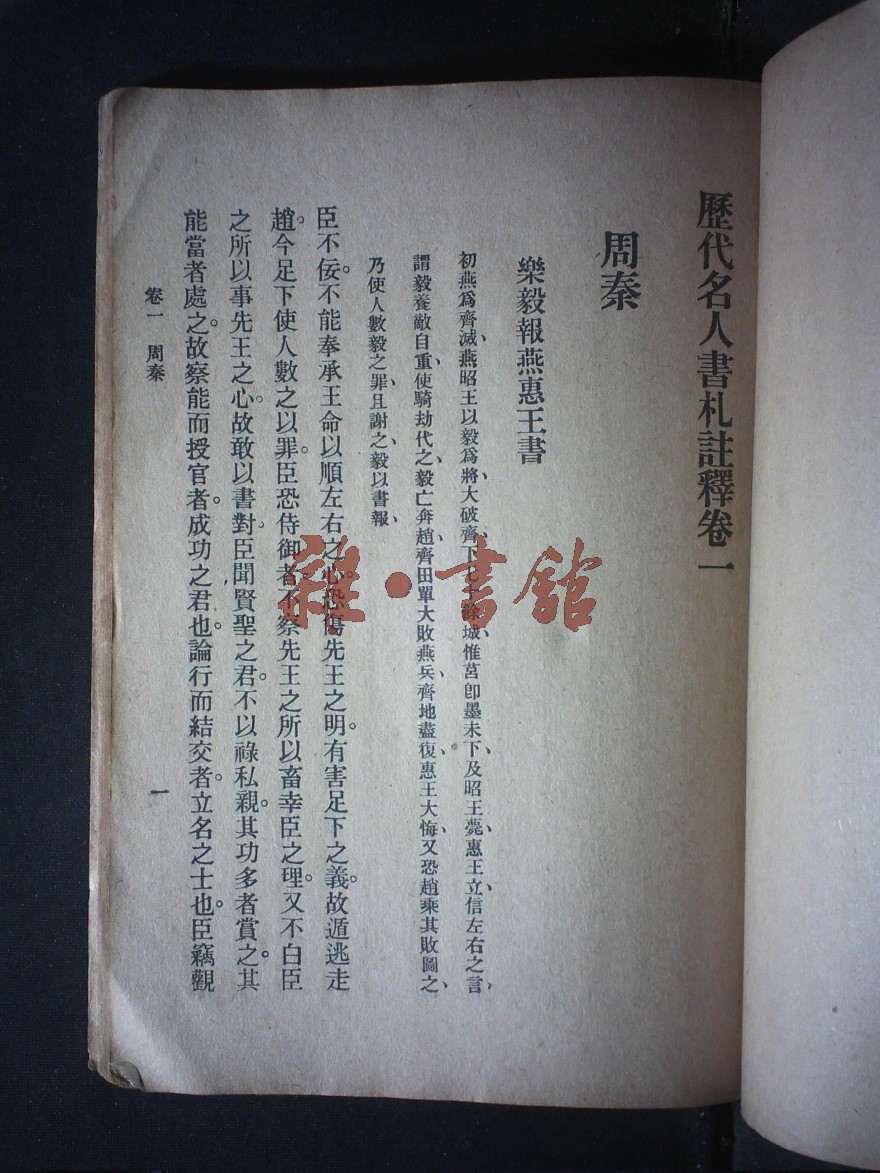 歷代名人書札註釋卷一
周秦
樂毅報燕惠王書
初燕爲齊滅、燕昭王以毅爲將、大破齊、下七十餘城、惟莒卽墨未下、及昭王薨、惠王立、信左右之言、
謂毅養敵自重、使騎劫代之、毅亡奔趙、齊田單大敗燕兵、齊地盡復、惠王大悔、又恐趙乘其敗圖之、
乃使人數毅之罪、且謝之、毅以書報、
臣不佞。不能奉承王命以順左右之心。恐傷先王之明。有害足下之義。故遁逃走
趙。今足下使人數之以罪。臣恐侍御者。不察先王之所以畜幸臣之理。又不白臣
之所以事先王之心。故敢以書對。臣聞賢聖之君。不以祿私親。其功多者賞之。其
能當者處之。故察能而授官者。成功之君也。論行而結交者。立名之士也。臣竊觀
卷一 周秦
一
雜·書館